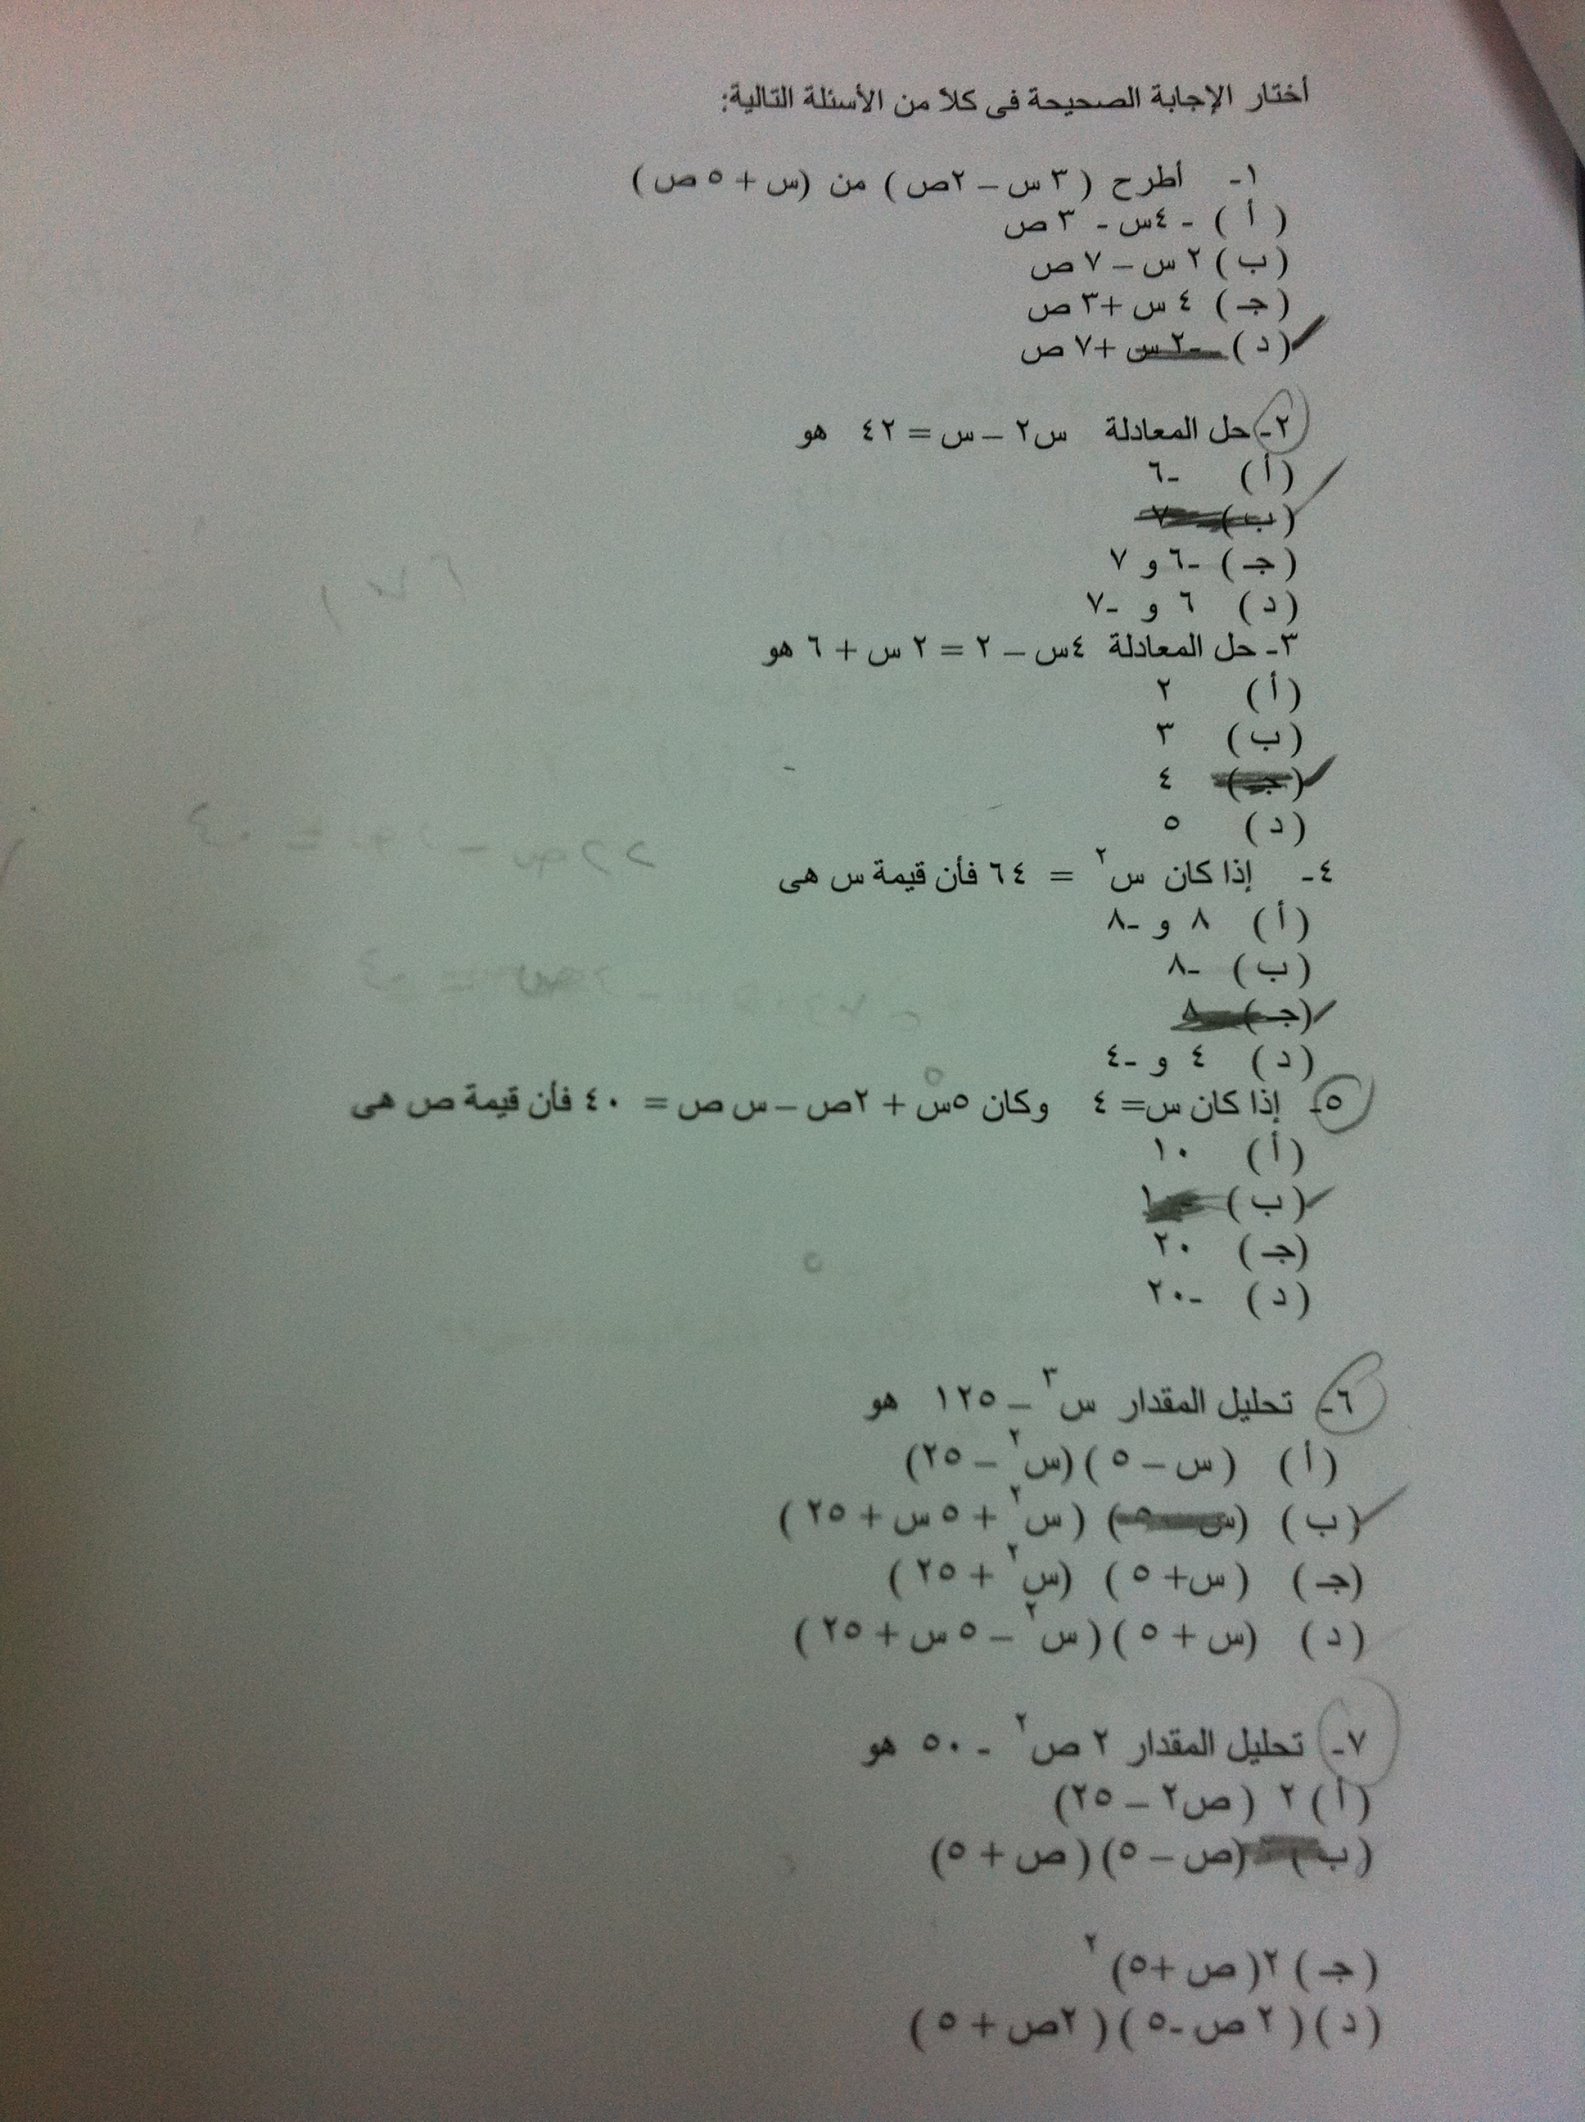 أختار الإجابة الصحيحة فى كلاً من الأسئلة التالية:
١- أطرح ( ٣ س – ٢ص ) من (س + ٥ ص )
( أ ) - ٤س - ٣ ص
( ب ) ٢ س – ٧ ص
( جـ ) ٤ س +٣ ص
( د ) -٢ س +٧ ص
٢- حل المعادلة س٢ – س = ٤٢ هو
( أ ) -٦
( ب ) ٧
( جـ ) -٦ و ٧
( د ) ٦ و -٧
٣- حل المعادلة ٤س – ٢ = ٢ س + ٦ هو
( أ ) ٢
( ب ) ٣
( جـ ) ٤
( د ) ٥
٤- إذا كان س٢ = ٦٤ فأن قيمة س هى
( أ ) ٨ و -٨
( ب ) -٨
( جـ ) ٨
( د ) ٤ و -٤
٥- إذا كان س= ٤ وكان ٥س + ٢ص – س ص = ٤٠ فأن قيمة ص هى
( أ ) ١٠
( ب )
( جـ ) ٢٠
( د ) -٢٠
٦- تحليل المقدار س٣ – ١٢٥ هو
( أ ) ( س – ٥ ) (س٢ – ٢٥)
( ب ) (س – ٥) ( س٢ + ٥ س + ٢٥ )
(جـ ) ( س+ ٥ ) (س٢ + ٢٥ )
( د ) (س + ٥ ) ( س٢ – ٥ س + ٢٥ )
٧- تحليل المقدار ٢ ص٢ - ٥٠ هو
( أ ) ٢ ( ص٢ – ٢٥)
( ب ) (ص – ٥) ( ص + ٥)
( جـ ) ٢( ص +٥)٢
( د ) ( ٢ ص -٥ ) ( ٢ص + ٥ )